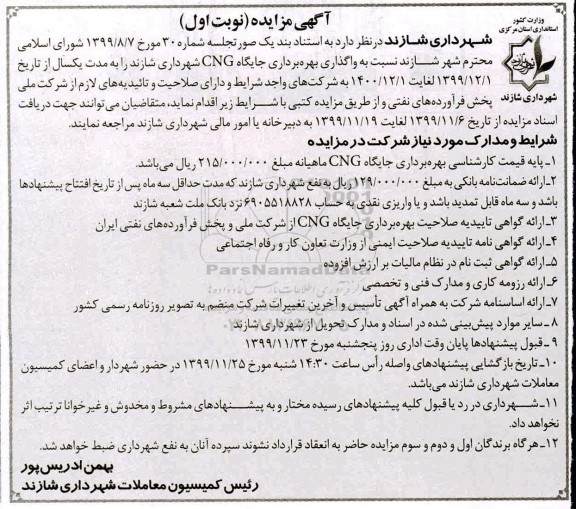 آگهی مزایده (نوبت اول)
وزارت کشور
استانداری استان مرکزی
شهرداری شازند
شهرداری شازند در نظر دارد به استناد بند یک صورتجلسه شماره ۳۰ مورخ ۱۳۹۹/۸/۷ شورای اسلامی
محترم شهر شازند نسبت به واگذاری بهره‌برداری جایگاه CNG شهرداری شازند را به مدت یکسال از تاریخ
۱۳۹۹/۱۲/۱ لغایت ۱۴۰۰/۱۲/۱ به شرکت‌های واجد شرایط و دارای صلاحیت و تائیدیه‌های لازم از شرکت ملی
پخش فرآورده‌های نفتی و از طریق مزایده کتبی با شرایط زیر اقدام نماید، متقاضیان می‌توانند جهت دریافت
اسناد مزایده از تاریخ ۱۳۹۹/۱۱/۶ لغایت ۱۳۹۹/۱۱/۱۹ به دبیرخانه یا امور مالی شهرداری شازند مراجعه نمایند.
شرایط و مدارک مورد نیاز شرکت در مزایده
۱ـ پایه قیمت کارشناسی بهره‌برداری جایگاه CNG ماهیانه مبلغ ۲۱۵/۰۰۰/۰۰۰ ریال می‌باشد.
۲ـ ارائه ضمانت‌نامه بانکی به مبلغ ۱۲۹/۰۰۰/۰۰۰ ریال به نفع شهرداری شازند که مدت حداقل سه ماه پس از تاریخ افتتاح پیشنهادها
باشد و سه ماه قابل تمدید باشد و یا واریزی نقدی به حساب ۶۹۰۵۵۱۸۸۲۸ نزد بانک ملت شعبه شازند
۳ـ ارائه گواهی تاییدیه صلاحیت بهره‌برداری جایگاه CNG از شرکت ملی و پخش فرآورده‌های نفتی ایران
۴ـ ارائه گواهی نامه تاییدیه صلاحیت ایمنی از وزارت تعاون کار و رفاه اجتماعی
۵ـ ارائه گواهی ثبت نام در نظام مالیات بر ارزش افزوده
۶ـ ارائه رزومه کاری و مدارک فنی و تخصصی
۷ـ ارائه اساسنامه شرکت به همراه آگهی تأسیس و آخرین تغییرات شرکت منضم به تصویر روزنامه رسمی کشور
۸ـ سایر موارد پیش‌بینی شده در اسناد و مدارک تحویل از شهرداری شازند
۹ـ قبول پیشنهادها پایان وقت اداری روز پنجشنبه مورخ ۱۳۹۹/۱۱/۲۳
۱۰ـ تاریخ بازگشایی پیشنهادهای واصله رأس ساعت ۱۴:۳۰ شنبه مورخ ۱۳۹۹/۱۱/۲۵ در حضور شهردار و اعضای کمیسیون
معاملات شهرداری شازند می‌باشد.
۱۱ـ شهرداری در رد یا قبول کلیه پیشنهادهای رسیده مختار و به پیشنهادهای مشروط و مخدوش و غیرخوانا ترتیب اثر
نخواهد داد.
۱۲ـ هرگاه برندگان اول و دوم و سوم مزایده حاضر به انعقاد قرارداد نشوند سپرده آنان به نفع شهرداری ضبط خواهد شد.
بهمن ادریس‌پور
رئیس کمیسیون معاملات شهرداری شازند
ParsNamadData